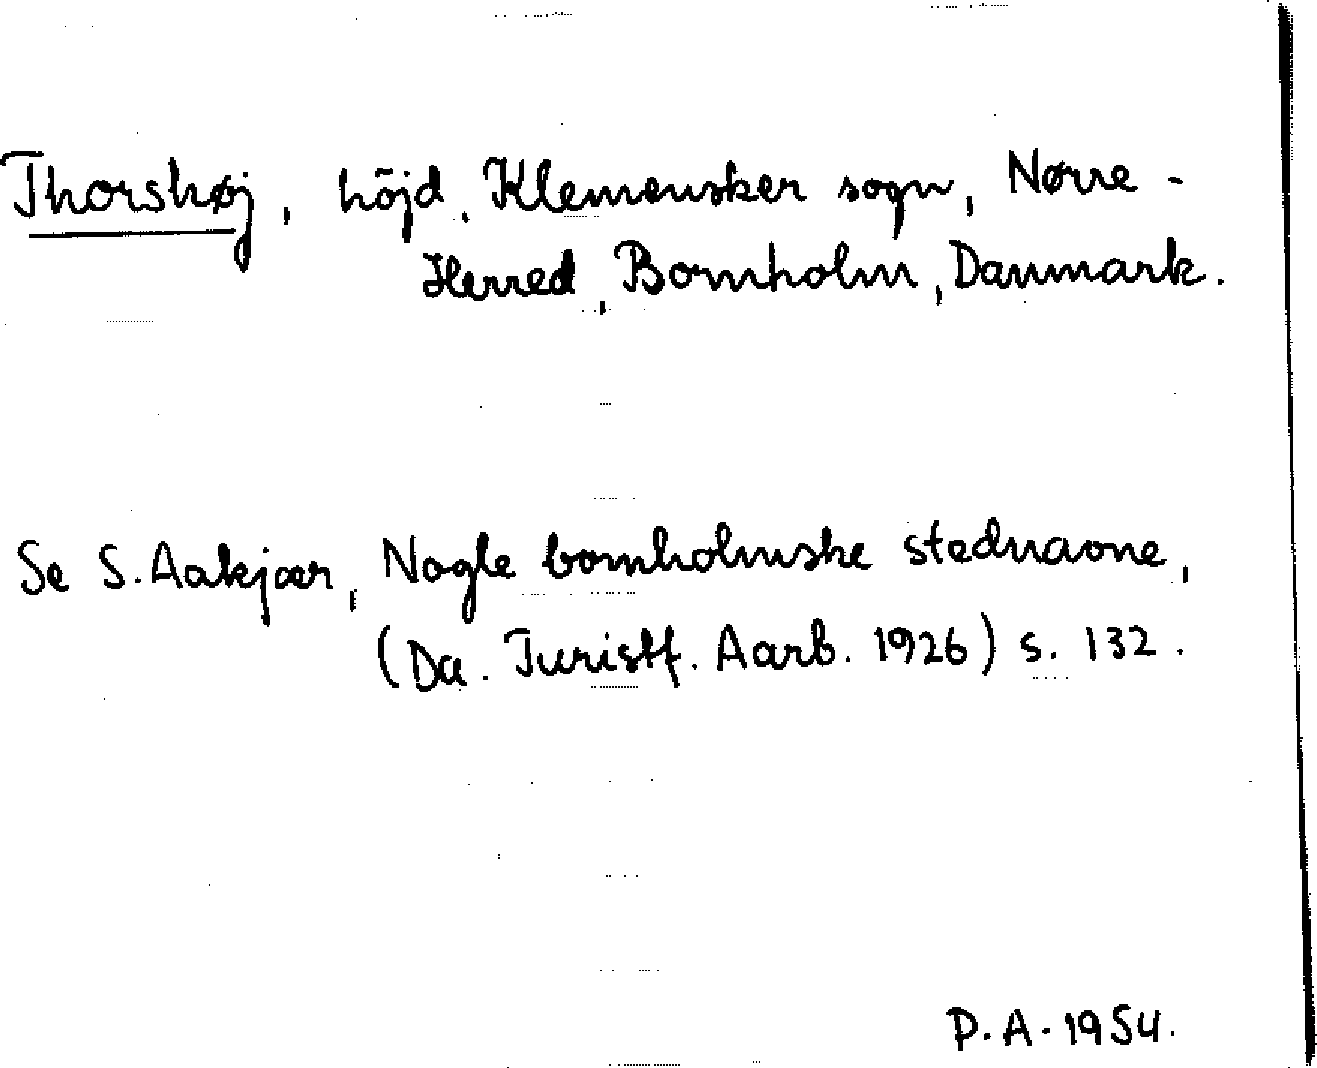 Thorshøj, höjd, Klemensker sogn, Nørre-
Herred, Bornholm, Danmark.
Se S. Aakjær, Nogle bornholmske stednavne,
(Da. Turistf. Aarb. 1926) s. 132.
P.A. 1954.